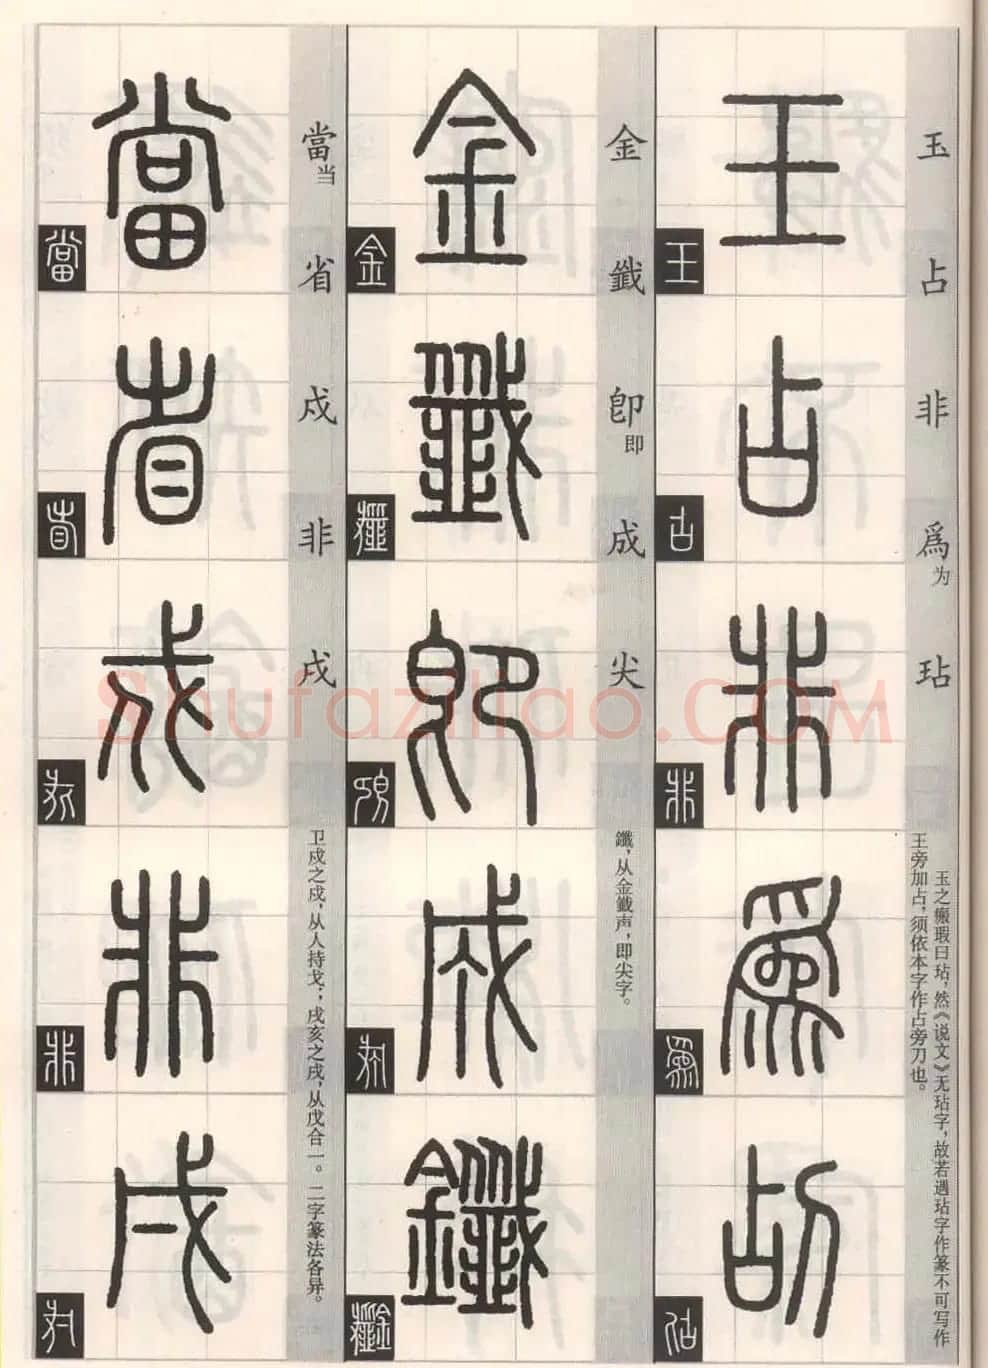 玉占非爲为玷
玉之瘢瑕曰玷，然《说文》无玷字，故若遇玷字作篆不可写作
王旁加占，须依本字作占旁刀也。
金鑯卽即成尖
鑯，从金韱声，即尖字。
當当省戍非戌
卫戍之戍，从人持戈；戌亥之戌，从戊合一。二字篆法各异。
Shufaziliao.COM